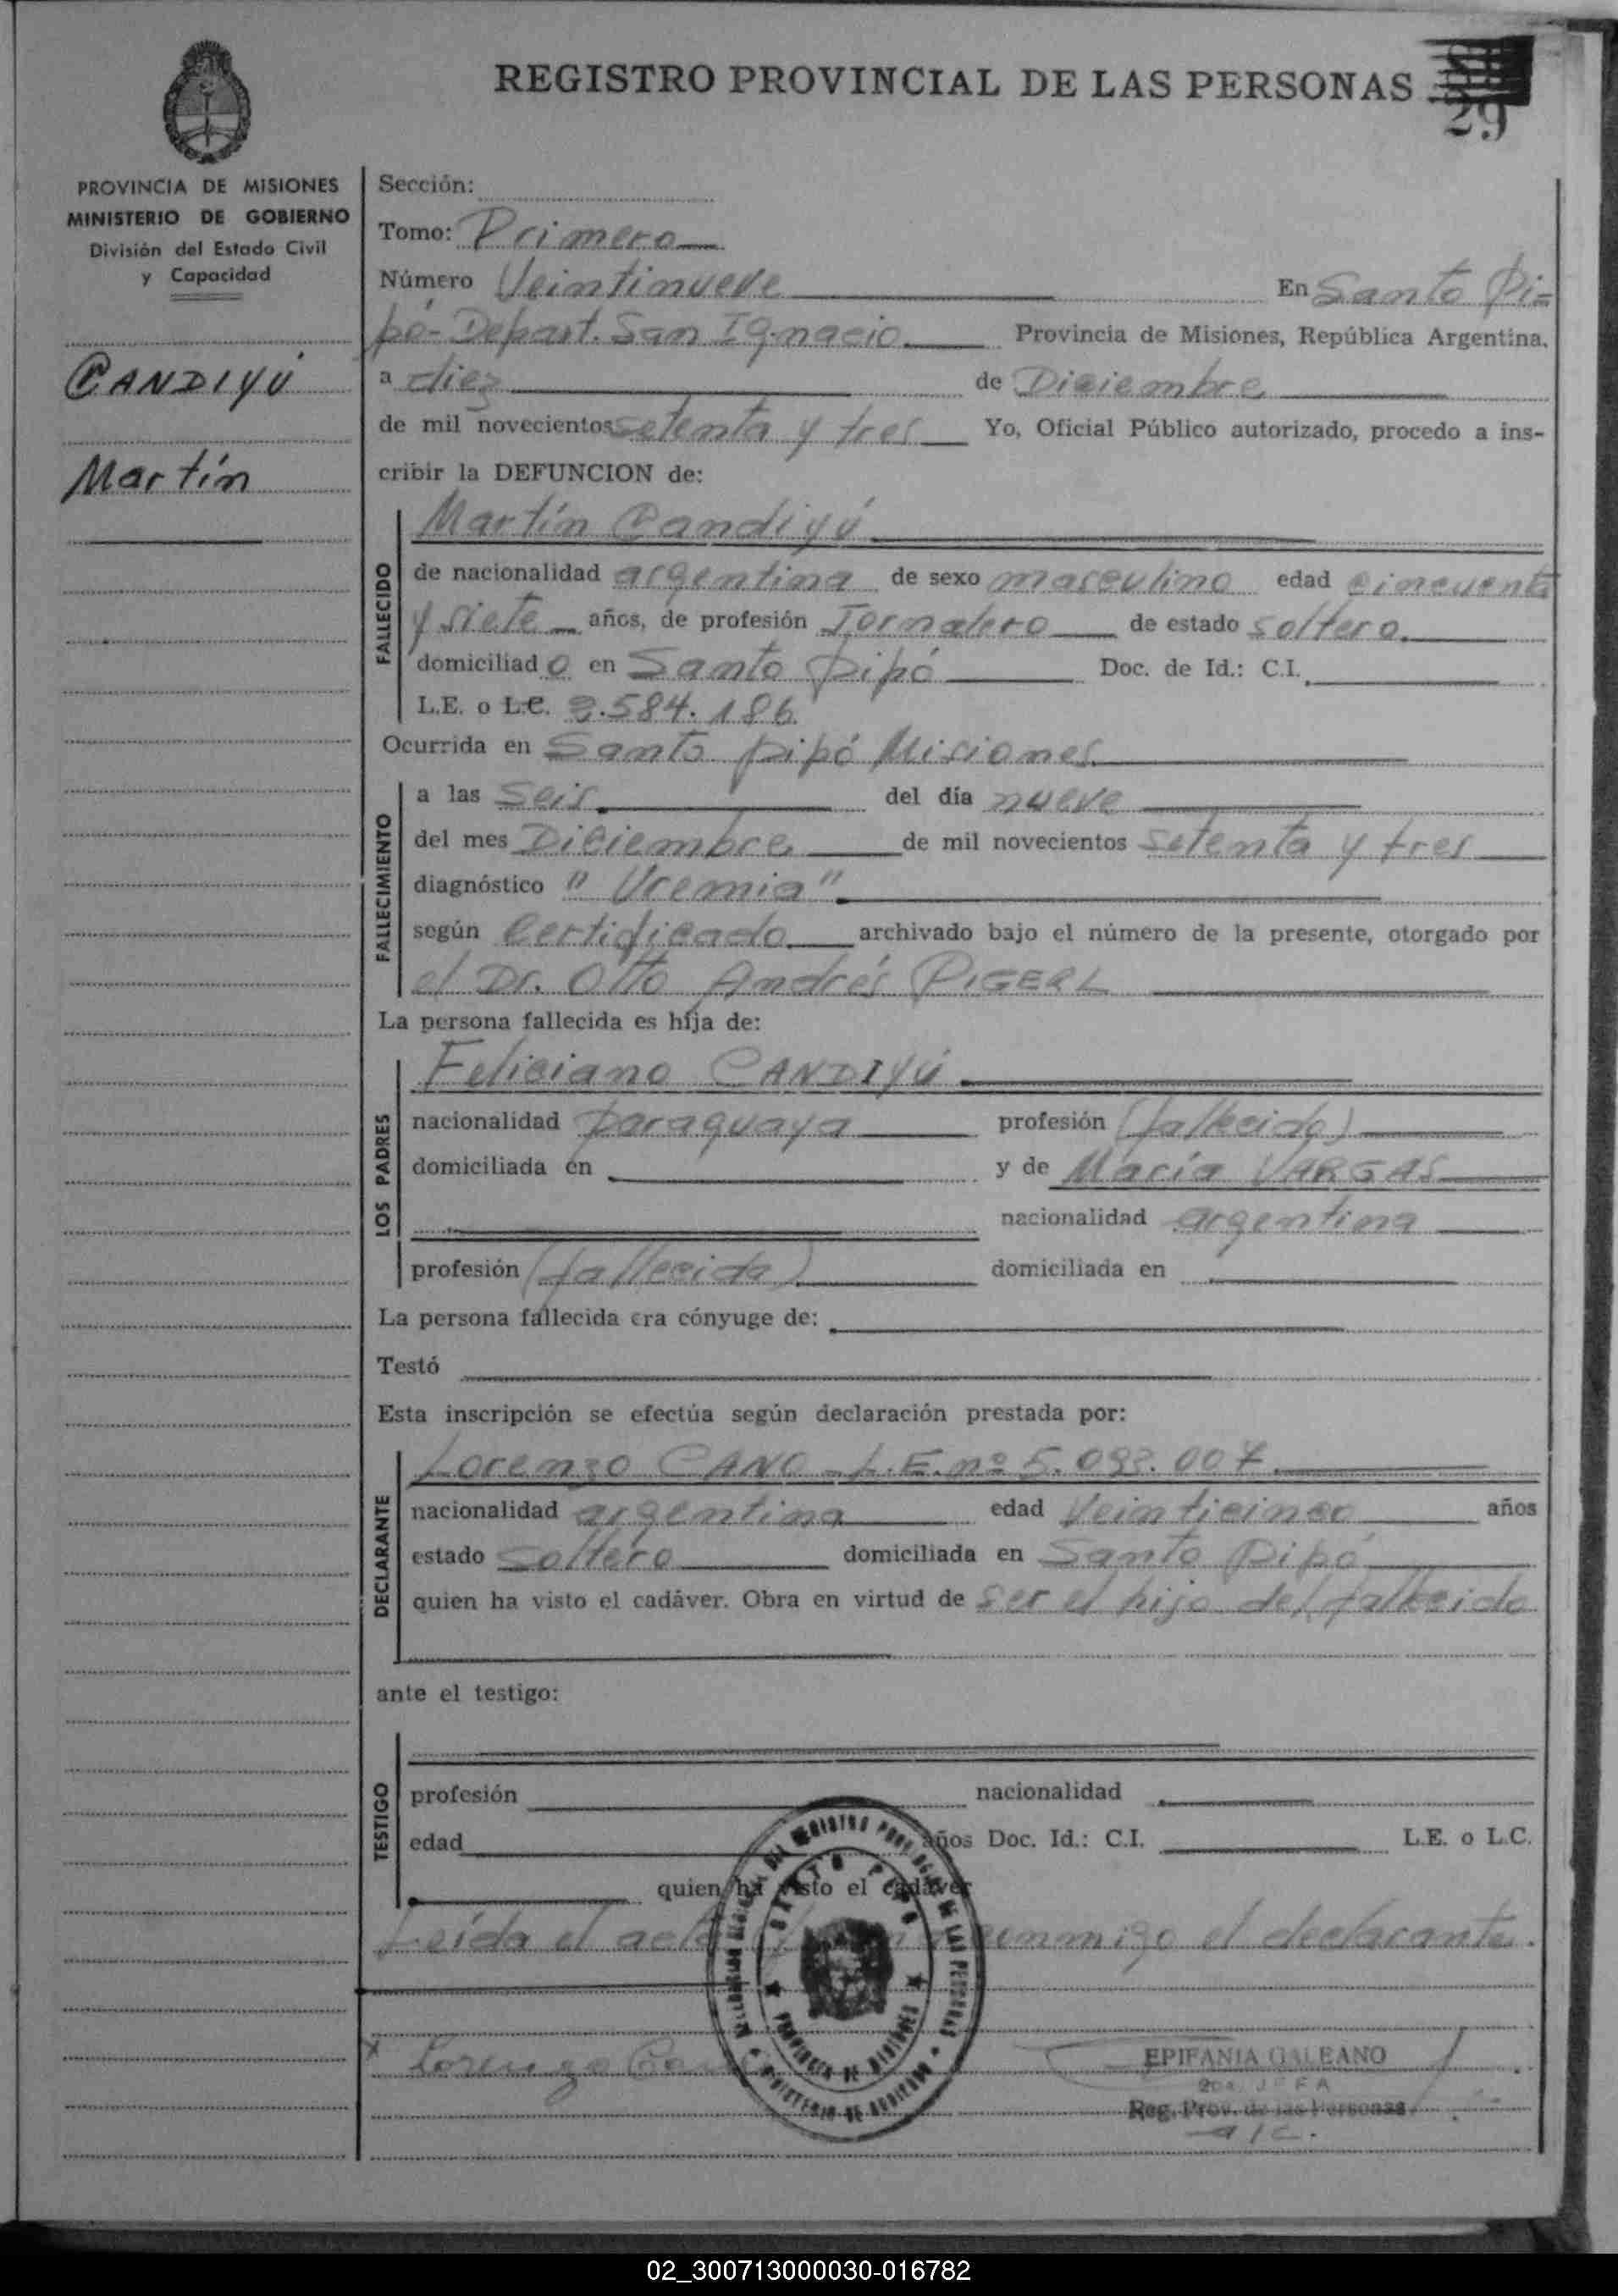 REGISTRO PROVINCIAL DE LAS PERSONAS
29
PROVINCIA DE MISIONES
MINISTERIO DE GOBIERNO
División del Estado Civil
y Capacidad
CANDIYÚ
Martín
Sección:
Tomo: Primero
Número Veintinueve En Santo Pi-
pó-Depart. San Ignacio Provincia de Misiones, República Argentina,
a diez de Diciembre
de mil novecientos setenta y tres Yo, Oficial Público autorizado, procedo a ins-
cribir la DEFUNCION de:
FALLECIDO
Martín Candiyú
de nacionalidad argentina de sexo masculino edad cincuenta
y siete años, de profesión Jornalero de estado soltero
domiciliado en Santo Pipó Doc. de Id.: C.I.
L.E. o L.C. .584.186
Ocurrida en Santo Pipó Misiones
FALLECIMIENTO
a las seis del día nueve
del mes Diciembre de mil novecientos setenta y tres
diagnóstico "Uremia"
según Certificado archivado bajo el número de la presente, otorgado por
el Dr. Otto Andrés PIGERL
La persona fallecida es hija de:
LOS PADRES
Feliciano CANDIYÚ
nacionalidad paraguaya profesión (fallecido)
domiciliada en y de María VARGAS
nacionalidad argentina
profesión (fallecida) domiciliada en
La persona fallecida era cónyuge de:
Testó
Esta inscripción se efectúa según declaración prestada por:
DECLARANTE
Lorenzo CANO - L.E. nº 5.093.007
nacionalidad argentina edad Veinticinco años
estado soltero domiciliada en Santo Pipó
quien ha visto el cadáver. Obra en virtud de ser el hijo del fallecido
ante el testigo:
TESTIGO
profesión nacionalidad
edad años Doc. Id.: C.I. L.E. o L.C.
quien ha visto el cadáver
Leída el acta conmigo el declarante.
x Lorenzo Cano
SANTO PIPO
PROVINCIA DE MISIONES
MINISTERIO DE GOBIERNO
EPIFANIA GALEANO
2da. JEFA
Reg. Prov. de las Personas
a/c.
02_300713000030-016782